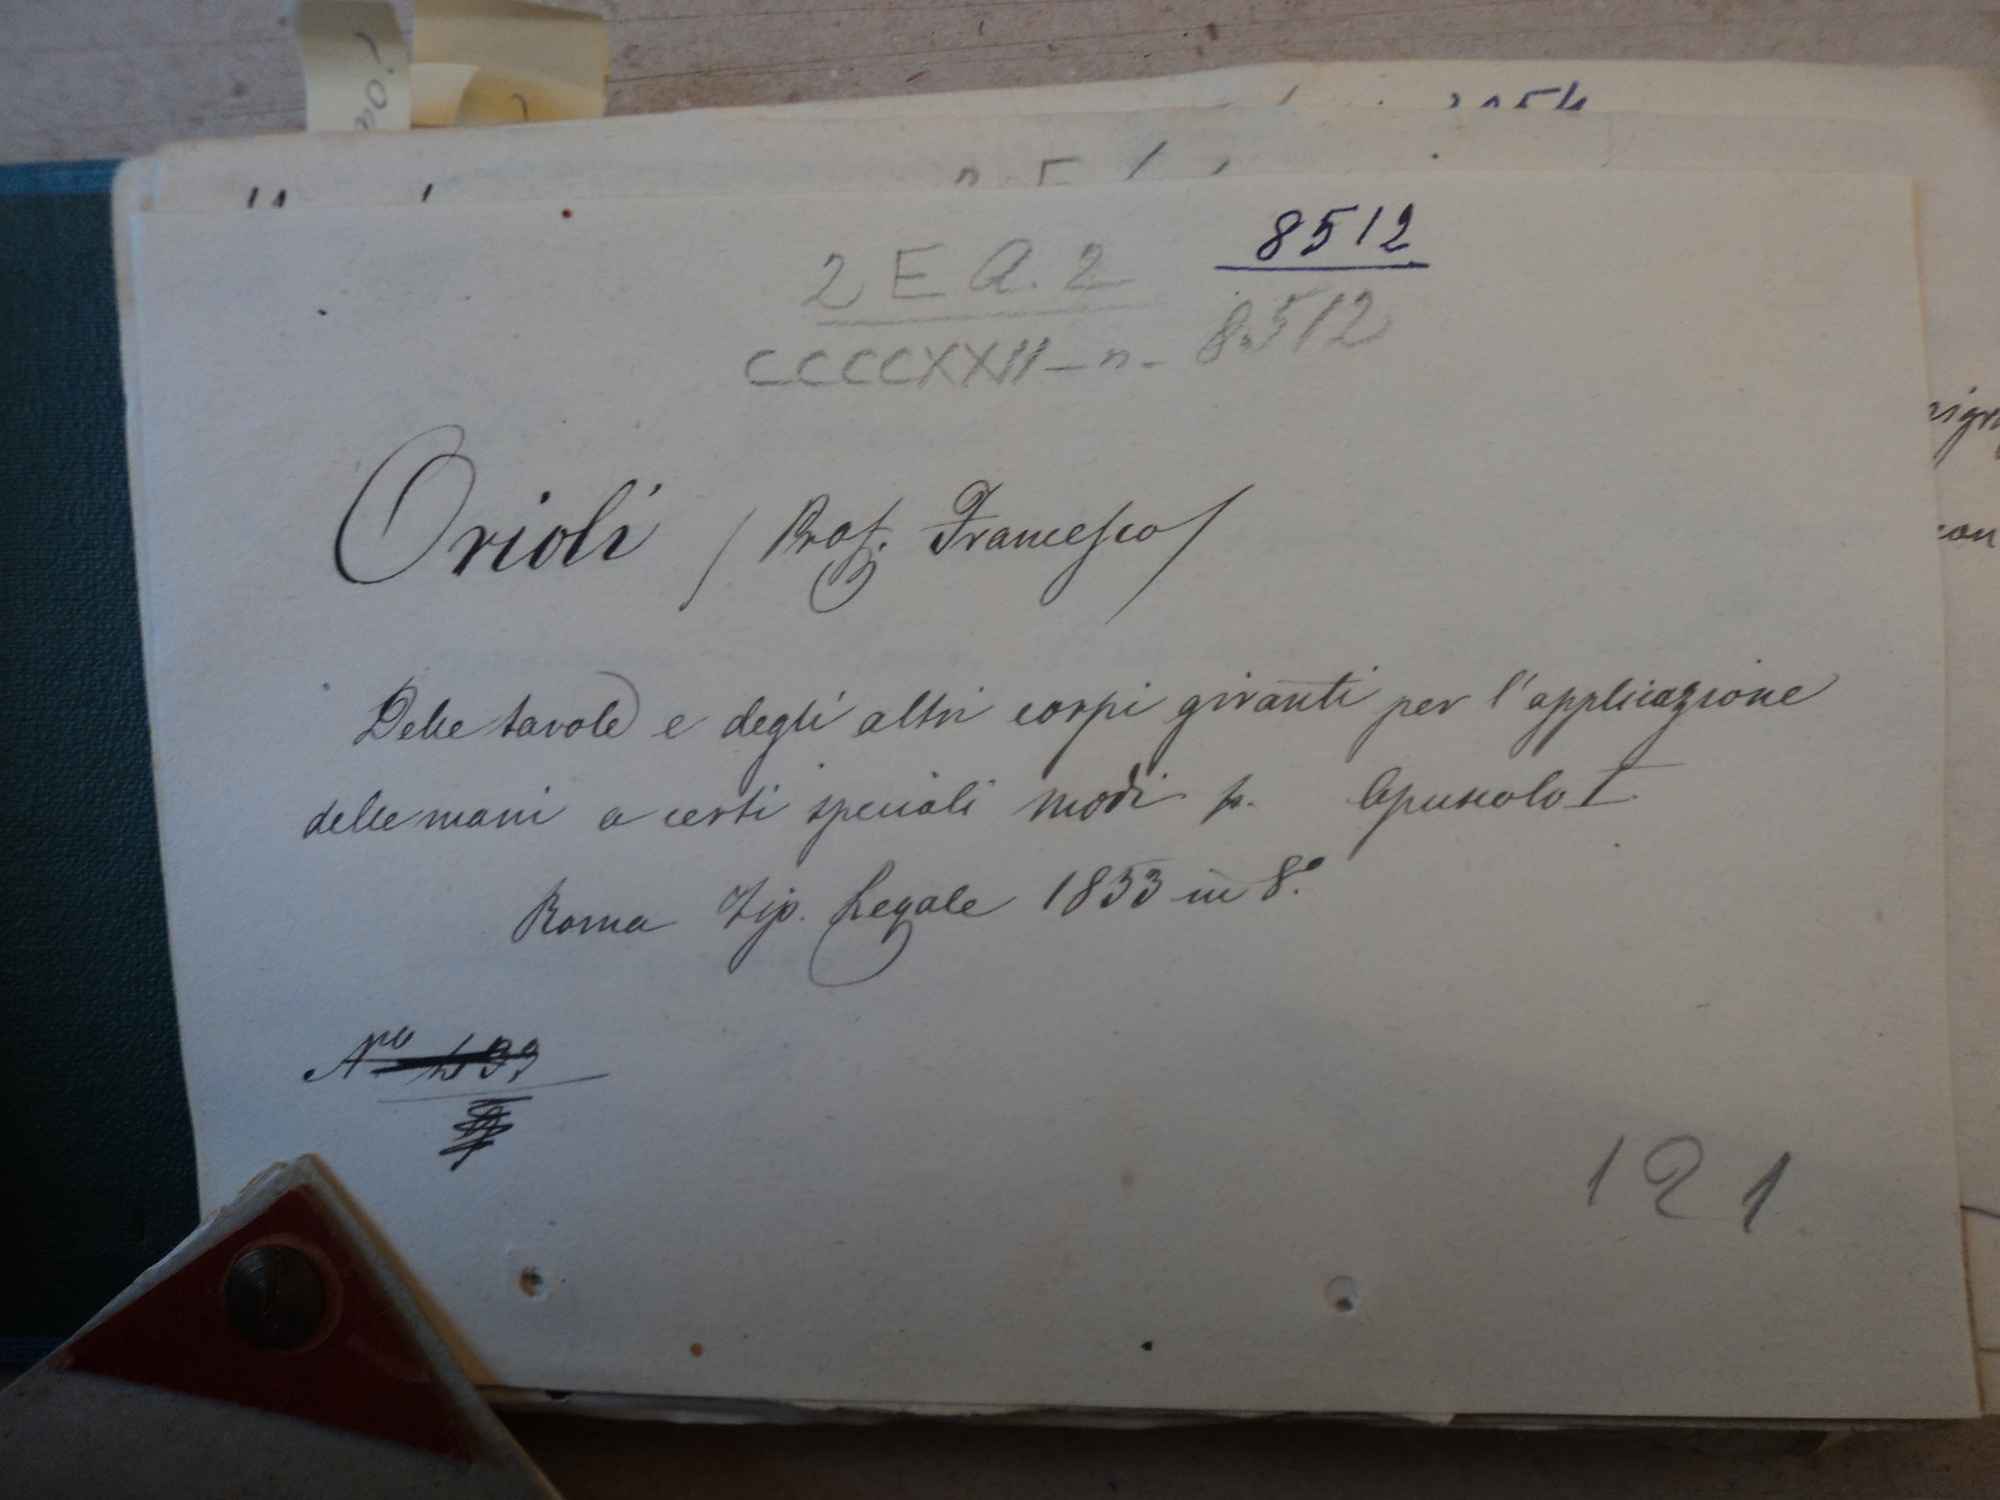 8512
2 E Q. 2
CCCCXXII - n - 8512
Orioli / Prof. Francesco /
Delle tavole e degli altri corpi giranti per l'applicazione
delle mani a certi speciali modi Opuscolo I
Roma Tip. Legale 1853 in 8.º
Nro
121